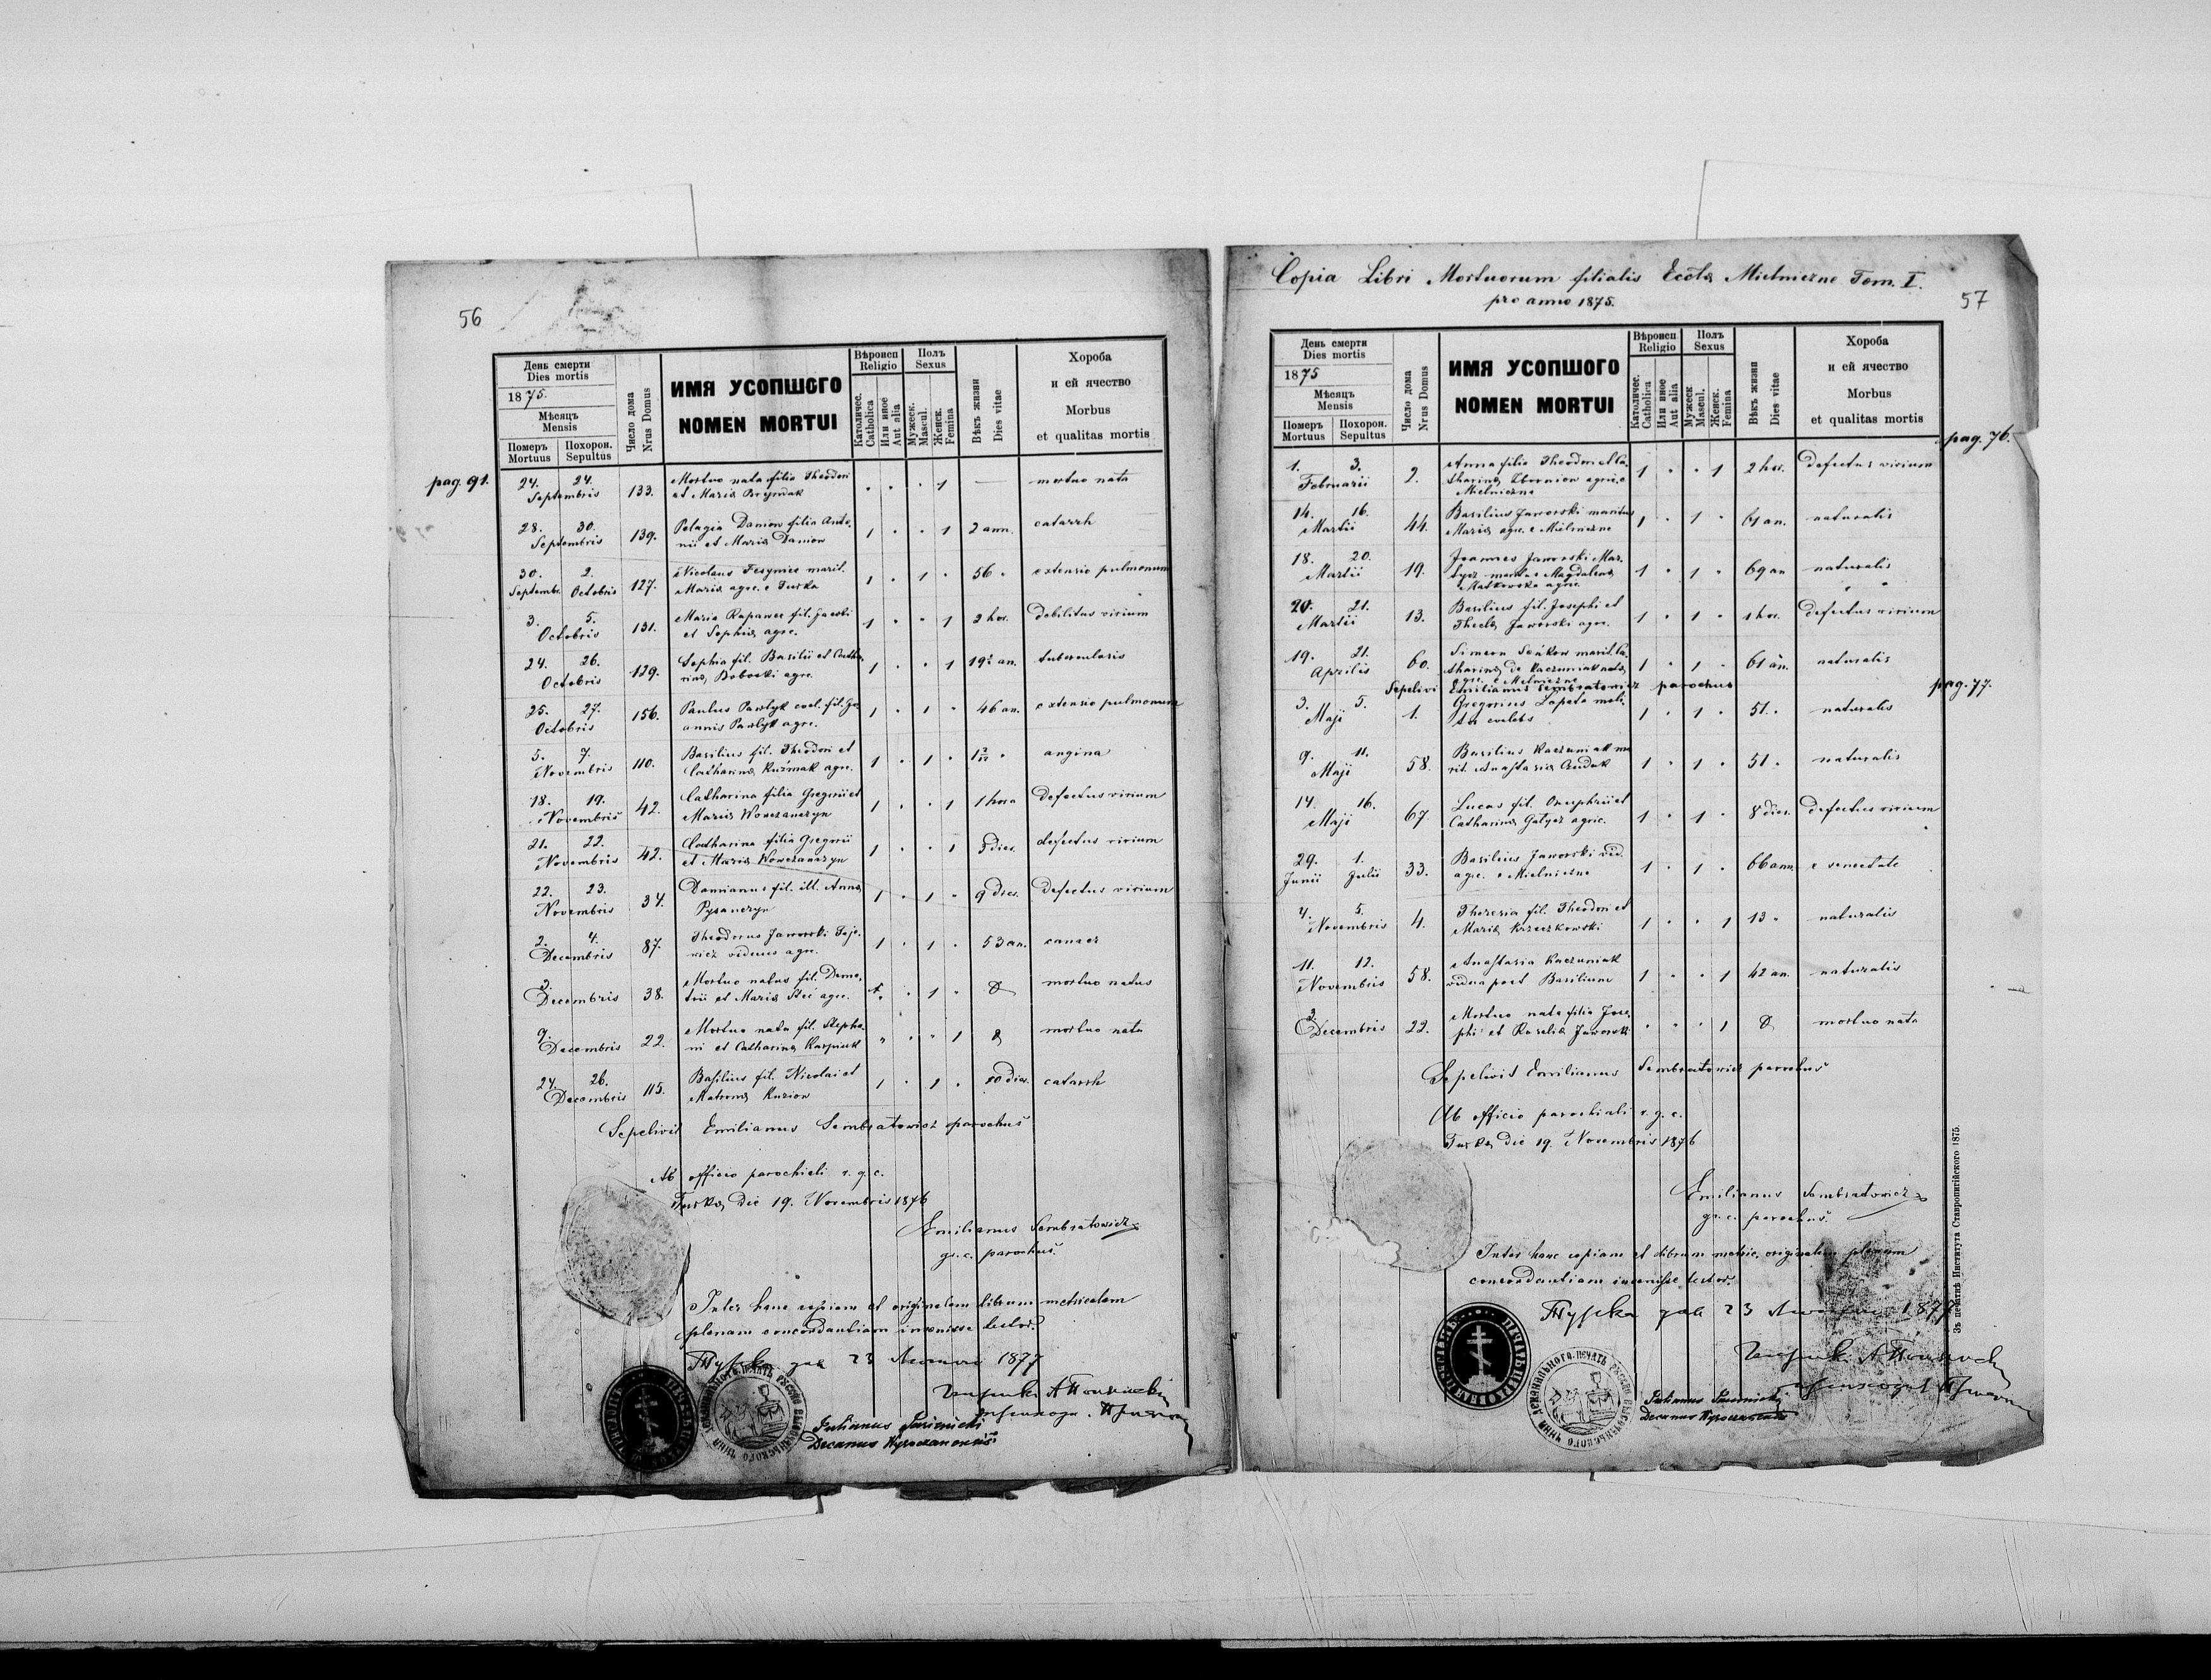 56
День смерти
Dies mortis
1875.
Мѣсяцъ
Mensis
Померъ Похорон.
Mortuus Sepultus
Число дома
Nrus Domus
ИМЯ УСОПШОГО
NOMEN MORTUI
Вѣроисп Полъ
Religio Sexus
Католичес.
Catholica
Или иное
Aut alia
Мужеск.
Mascul.
Женск.
Femina
Вѣкъ жизни
Dies vitae
Хороба
и ей ячество
Morbus
et qualitas mortis
pag. 91.
24. 24. Septembris 133. Mortuo nata filia Theodori
et Mariæ 1 — mortuo nata
28. 30. Septembris 139. Pelagia Danion filia Anto-
nii et Mariæ Danion 1 1 2 ann. catarrh
30. 2. Septembr. Octobris 127. Nicolaus marit.
Mariæ agrc. e Turka 1 1 56 " extensio pulmonum
3. 5. Octobris 131. Maria Rapawec fil. Jacobi
et Sophiæ agrc. 1 1 2 hor. debilitus virium
24. 26. Octobris 129. Sophia fil. Basilii et Catha-
rinæ agrc. 1 1 an. tuberculosis
25. 27. Octobris 156. Paulus Pawlyk coel. fil. Jo-
annis Pawlyk agrc. 1 1 46 an. extensio pulmonum
5. 7. Novembris 110. Basilius fil. Theodori et
Catharinæ Kuźmak agrc. 1 1 angina
18. 19. Novembris 42. Catharina filia Gregorii et
Mariæ Wowczanczyn 1 1 1 hora defectus virium
21. 22. Novembris 42. Catharina filia Gregorii
et Mariæ Wowczanczyn 1 1 3 dies. defectus virium
22. 23. Novembris 34. Damianus fil. ill. Annæ
Pysanczyn 1 1 9 dies. defectus virium
2. 4. Decembris 87. Theodorus Jaworski
viduus agrc. 1 1 53 an. cancer
3. Decembris 38. Mortuo natus fil. Deme-
trii et Mariæ agrc. 1 mortuo natus
9. Decembris 22. Mortuo nata fil. Stepha-
ni et Catharinæ 1 mortuo nata
24. 26. Decembris 115. Basilius fil. Nicolai et
Matronæ 1 1 10 dies. catarrh
Sepelivit Emilianus Sembratowicz parochus
Ab officio parochiali r. g. c.
Turka, die 19. Novembris 1876
Emilianus Sembratowicz
gr. c. parochus.
Inter hanc copiam et originalem librum metricalem
plenam concordantiam invenisse testor.
Турка дня 23 1877
Julianus
Decanus Wysoczanensis
57
Copia Libri Mortuorum filialis Eccles Mielniczne Tom. I.
pro anno 1875.
День смерти
Dies mortis
1875
Мѣсяцъ
Mensis
Померъ Похорон.
Mortuus Sepultus
Число дома
Nrus Domus
ИМЯ УСОПШОГО
NOMEN MORTUI
Вѣроисп Полъ
Religio Sexus
Католичес.
Catholica
Или иное
Aut alia
Мужеск
Mascul.
Женск.
Femina
Вѣкъ жизни
Dies vitae
Хороба
и ей ячество
Morbus
et qualitas mortis
pag. 76.
1. 3. Februarii 2. Anna filia Theodori et Ca-
tharinæ agric. e
Mielniczne 1 1 2 hor. defectus virium
14. 16. Martii 44. Basilius Jaworski maritus
Mariæ agr. e Mielniczne 1 1 61 an. naturalis
18. 20. Martii 19. Joannes Jaworski
maritus Magdalenæ
agrc. 1 1 69 an naturalis
20. 21. Martii 13. Basilius fil. Josephi et
Theclæ Jaworski agrc. 1 1 1 hor. defectus virium
19. 21. Aprilis 60. Simeon marit. Ca-
tharinæ de Kaczuniak nata
agrc. e Mielniczne 1 1 61 an. naturalis
Sepelivi Emilianus Sembratowicz parochus
pag. 77.
3. 5. Maji 1. Gregorius Łopata
1 1 51. naturalis
9. 11. Maji 58. Basilius Kaczuniak ma-
rit. Anastasiæ 1 1 51 " naturalis
14. 16. Maji 67. Lucas fil. Onuphrii et
Catharinæ agric. 1 1 8 dies. defectus virium
29. 1. Junii Julii 33. Basilius Jaworski vid.
agrc. e Mielniczne 1 1 66 ann. e senectute
4. 5. Novembris 4. Theresia fil. Theodori et
Mariæ Krzeczkowski 1 1 13 " naturalis
11. 12. Novembris 58. Anastasia Kaczuniak
vidua post Basilium 1 1 42 an. naturalis
3. Decembris 22. Mortuo nata filia Jose-
phi et Rosaliæ Jaworski 1 mortuo nata
Sepelivit Emilianus Sembratowicz parochus
Ab officio parochiali r. g. c.
Turka, die 19. Novembris 1876
Emilianus Sembratowicz
gr. c. parochus.
Inter hanc copiam et librum metric. originalem plenam
concordantiam invenisse testor.
Турка дня 23 1877
Julianus
Decanus
Зъ печатнѣ Института Ставропигійского 1875.